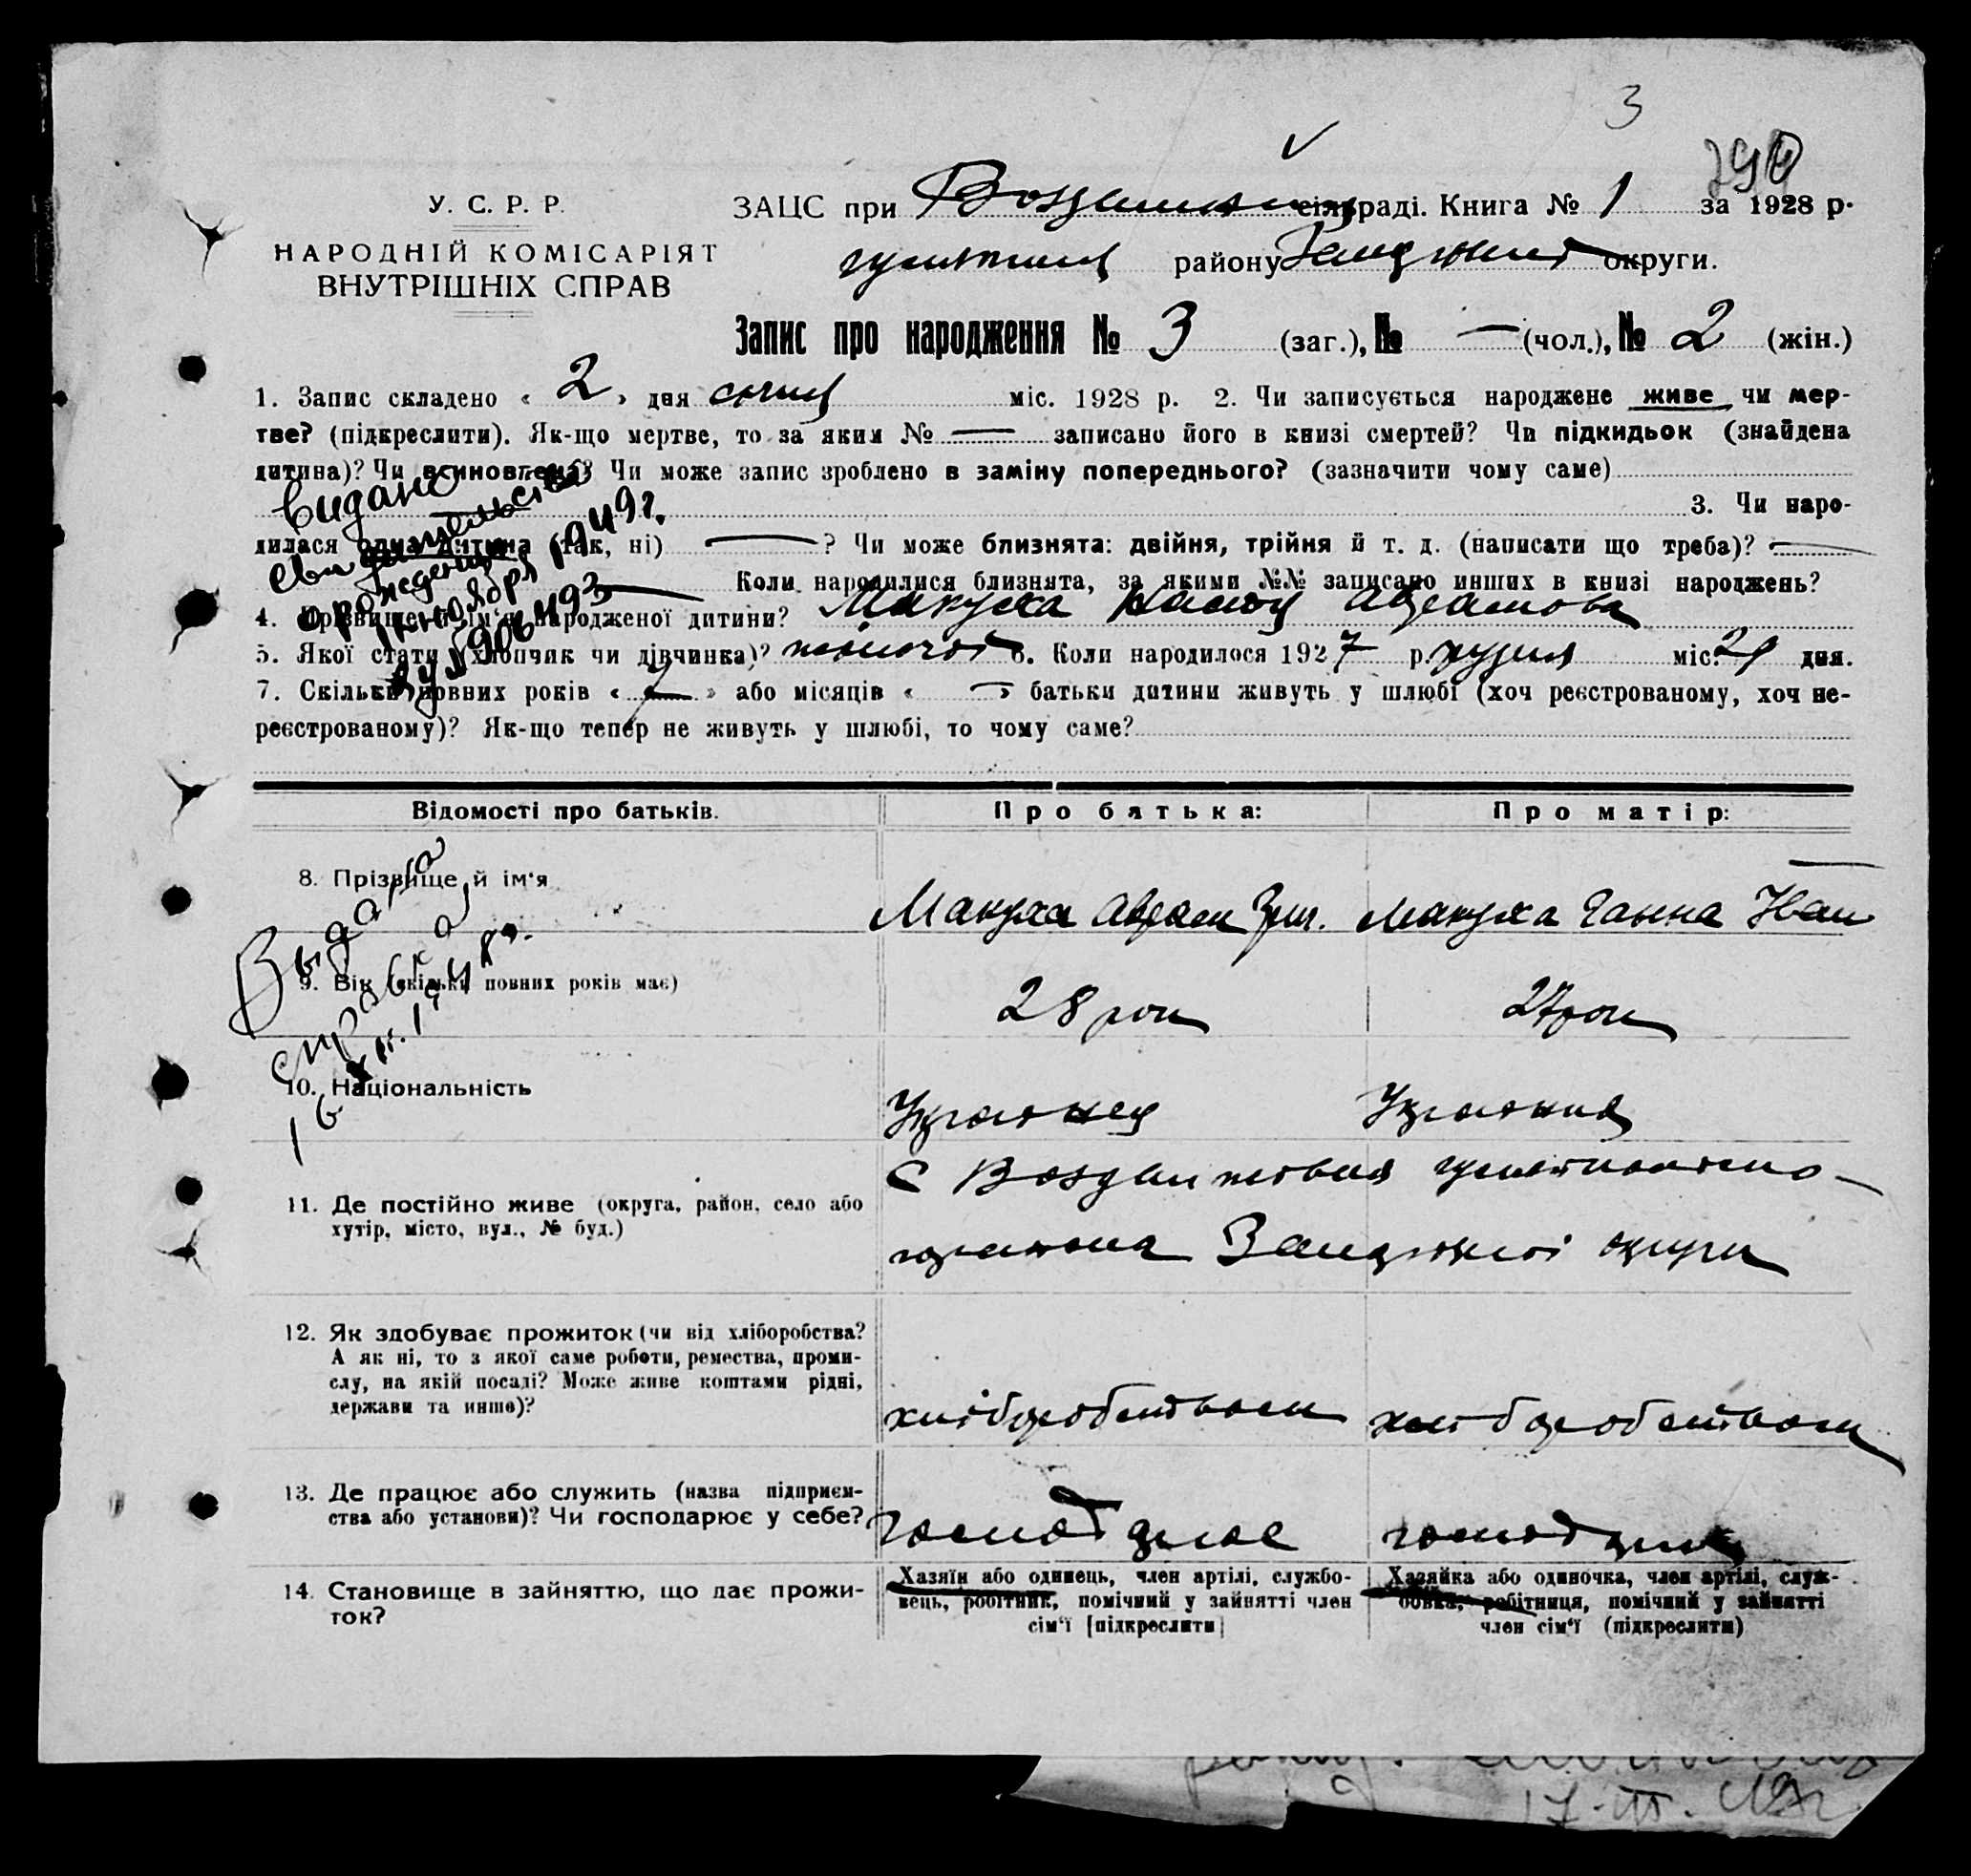 3
У. С. Р. Р.
НАРОДНІЙ КОМІСАРІЯТ
ВНУТРІШНІХ СПРАВ
ЗАЦС при сільраді. Книга № 1 за 1928 р.
району округи.
Запис про народження № 3 (заг.), № — (чол.), № 2 (жін.)
1. Запис складено « 2 » дня січня міс. 1928 р. 2. Чи записується народжене живе чи мер-
тве? (підкреслити). Як-що мертве, то за яким № — записано його в книзі смертей? Чи підкидьок (знайдена
дитина)? Чи всиновлена? Чи може запис зроблено в заміну попереднього? (зазначити чому саме)
3. Чи наро-
дилася одна дитина (так, ні) — ? Чи може близнята: двійня, трійня й т. д. (написати що треба)? —
— Коли народилися близнята, за якими №№ записано инших в книзі народжень?
4. Прізвище й ім'я народженої дитини? Макуха
5. Якої стати (хлопчик чи дівчинка)? жіночої 6. Коли народилося 1927 р. грудня міс. дня.
7. Скільки повних років « » або місяців « — » батьки дитини живуть у шлюбі (хоч реєстрованому, хоч не-
реєстрованому)? Як-що тепер не живуть у шлюбі, то чому саме?
видано
свидательство
о рождении
1949г.
Відомості про батьків.
Про батька:
Про матір:
8. Прізвище й ім'я
Макуха Аврам Гри.
Макуха Ганна Іван
Выдана
справка
9. Вік (скільки повних років має)
28 рок
27 рок
10. Національність
Українец
Українка
11. Де постійно живе (округа, район, село або
хутір, місто, вул., № буд.)
с Воздвижевка
округи
12. Як здобуває прожиток (чи від хліборобства?
А як ні, то з якої саме роботи, ремества, проми-
слу, на якій посаді? Може живе коштами рідні,
держави та инше)?
хліборобством
хліборобством
13. Де працює або служить (назва підприєм-
ства або установи)? Чи господарює у себе?
господарює
господарює
14. Становище в зайняттю, що дає прожи-
ток?
Хазяїн або одинець, член артілі, службо-
вець, робітник, помічний у зайнятті член
сім'ї [підкреслити]
Хазяйка або одиночка, член артілі, служ-
бовка, робітниця, помічний у зайнятті
член сім'ї (підкреслити)